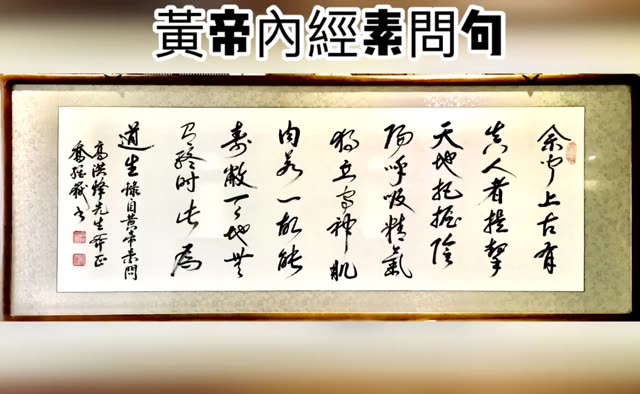 黃帝內經素問句
余聞上古有
真人者提挈
天地把握陰
陽呼吸精氣
獨立守神肌
肉若一故能
壽敝天地無
有終時此為
道生 錄自黃帝素問
高洪先生正